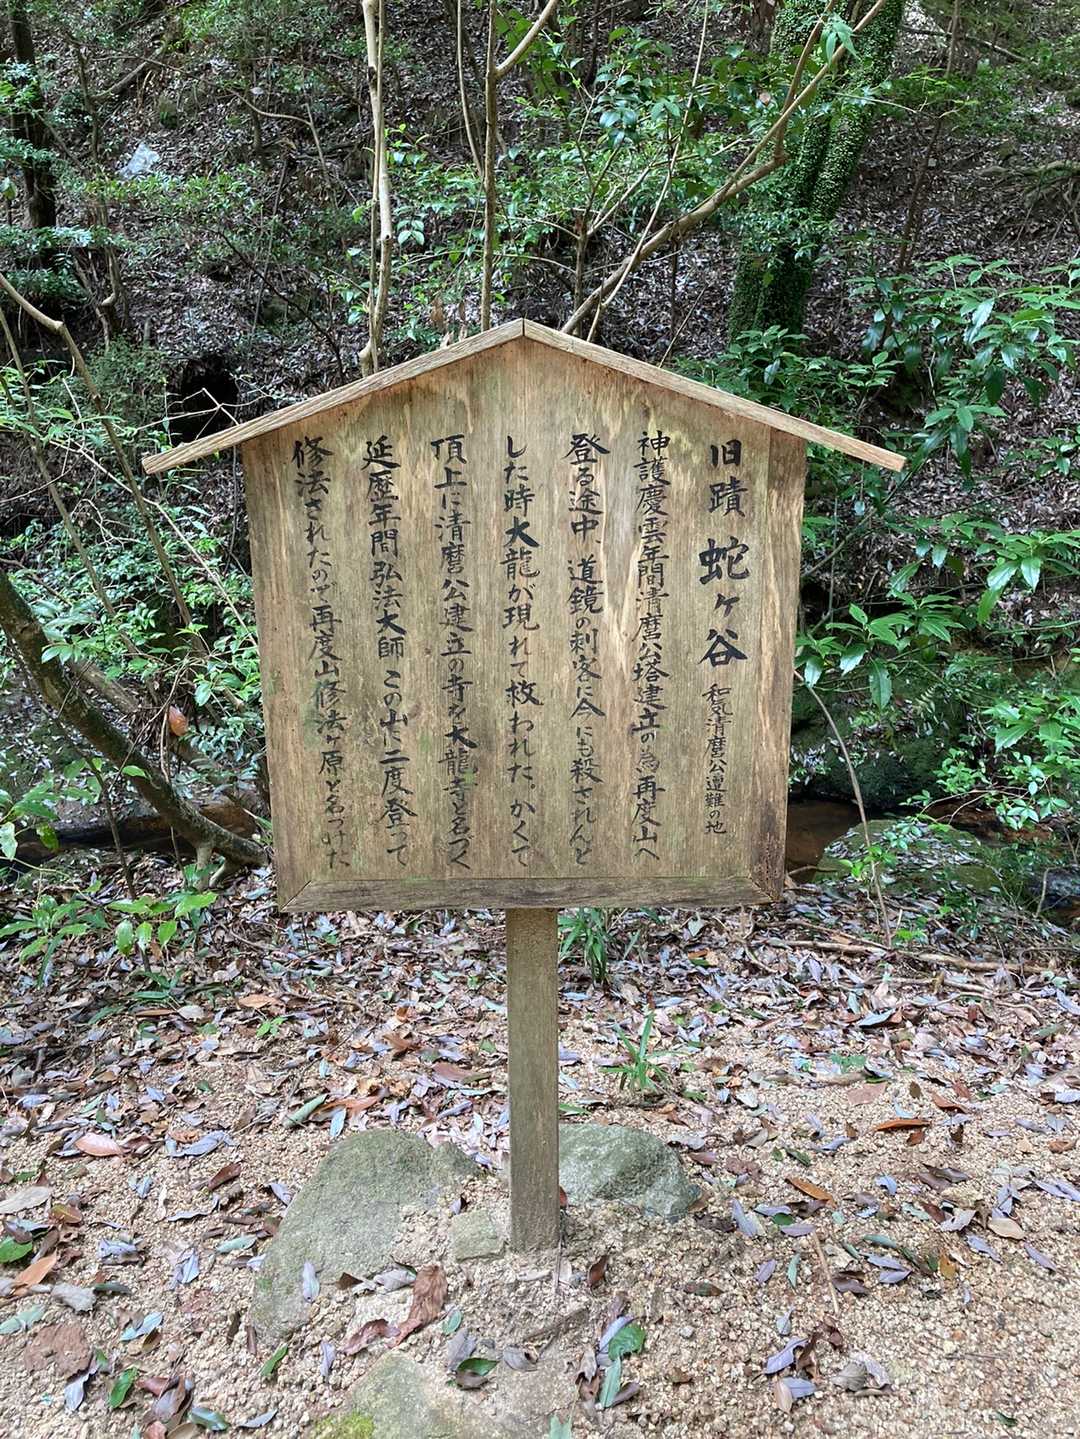 旧蹟 蛇ヶ谷 和気清麿公遭難の地
神護慶雲年間清麿公塔建立の為再度山へ
登る途中、道鏡の刺客に今にも殺されんと
した時大龍が現れて救われた。かくて
頂上に清麿公建立の寺を大龍寺と名づく
延歴年間弘法大師この山に二度登って
修法されたので再度山修法ヶ原と名づけた